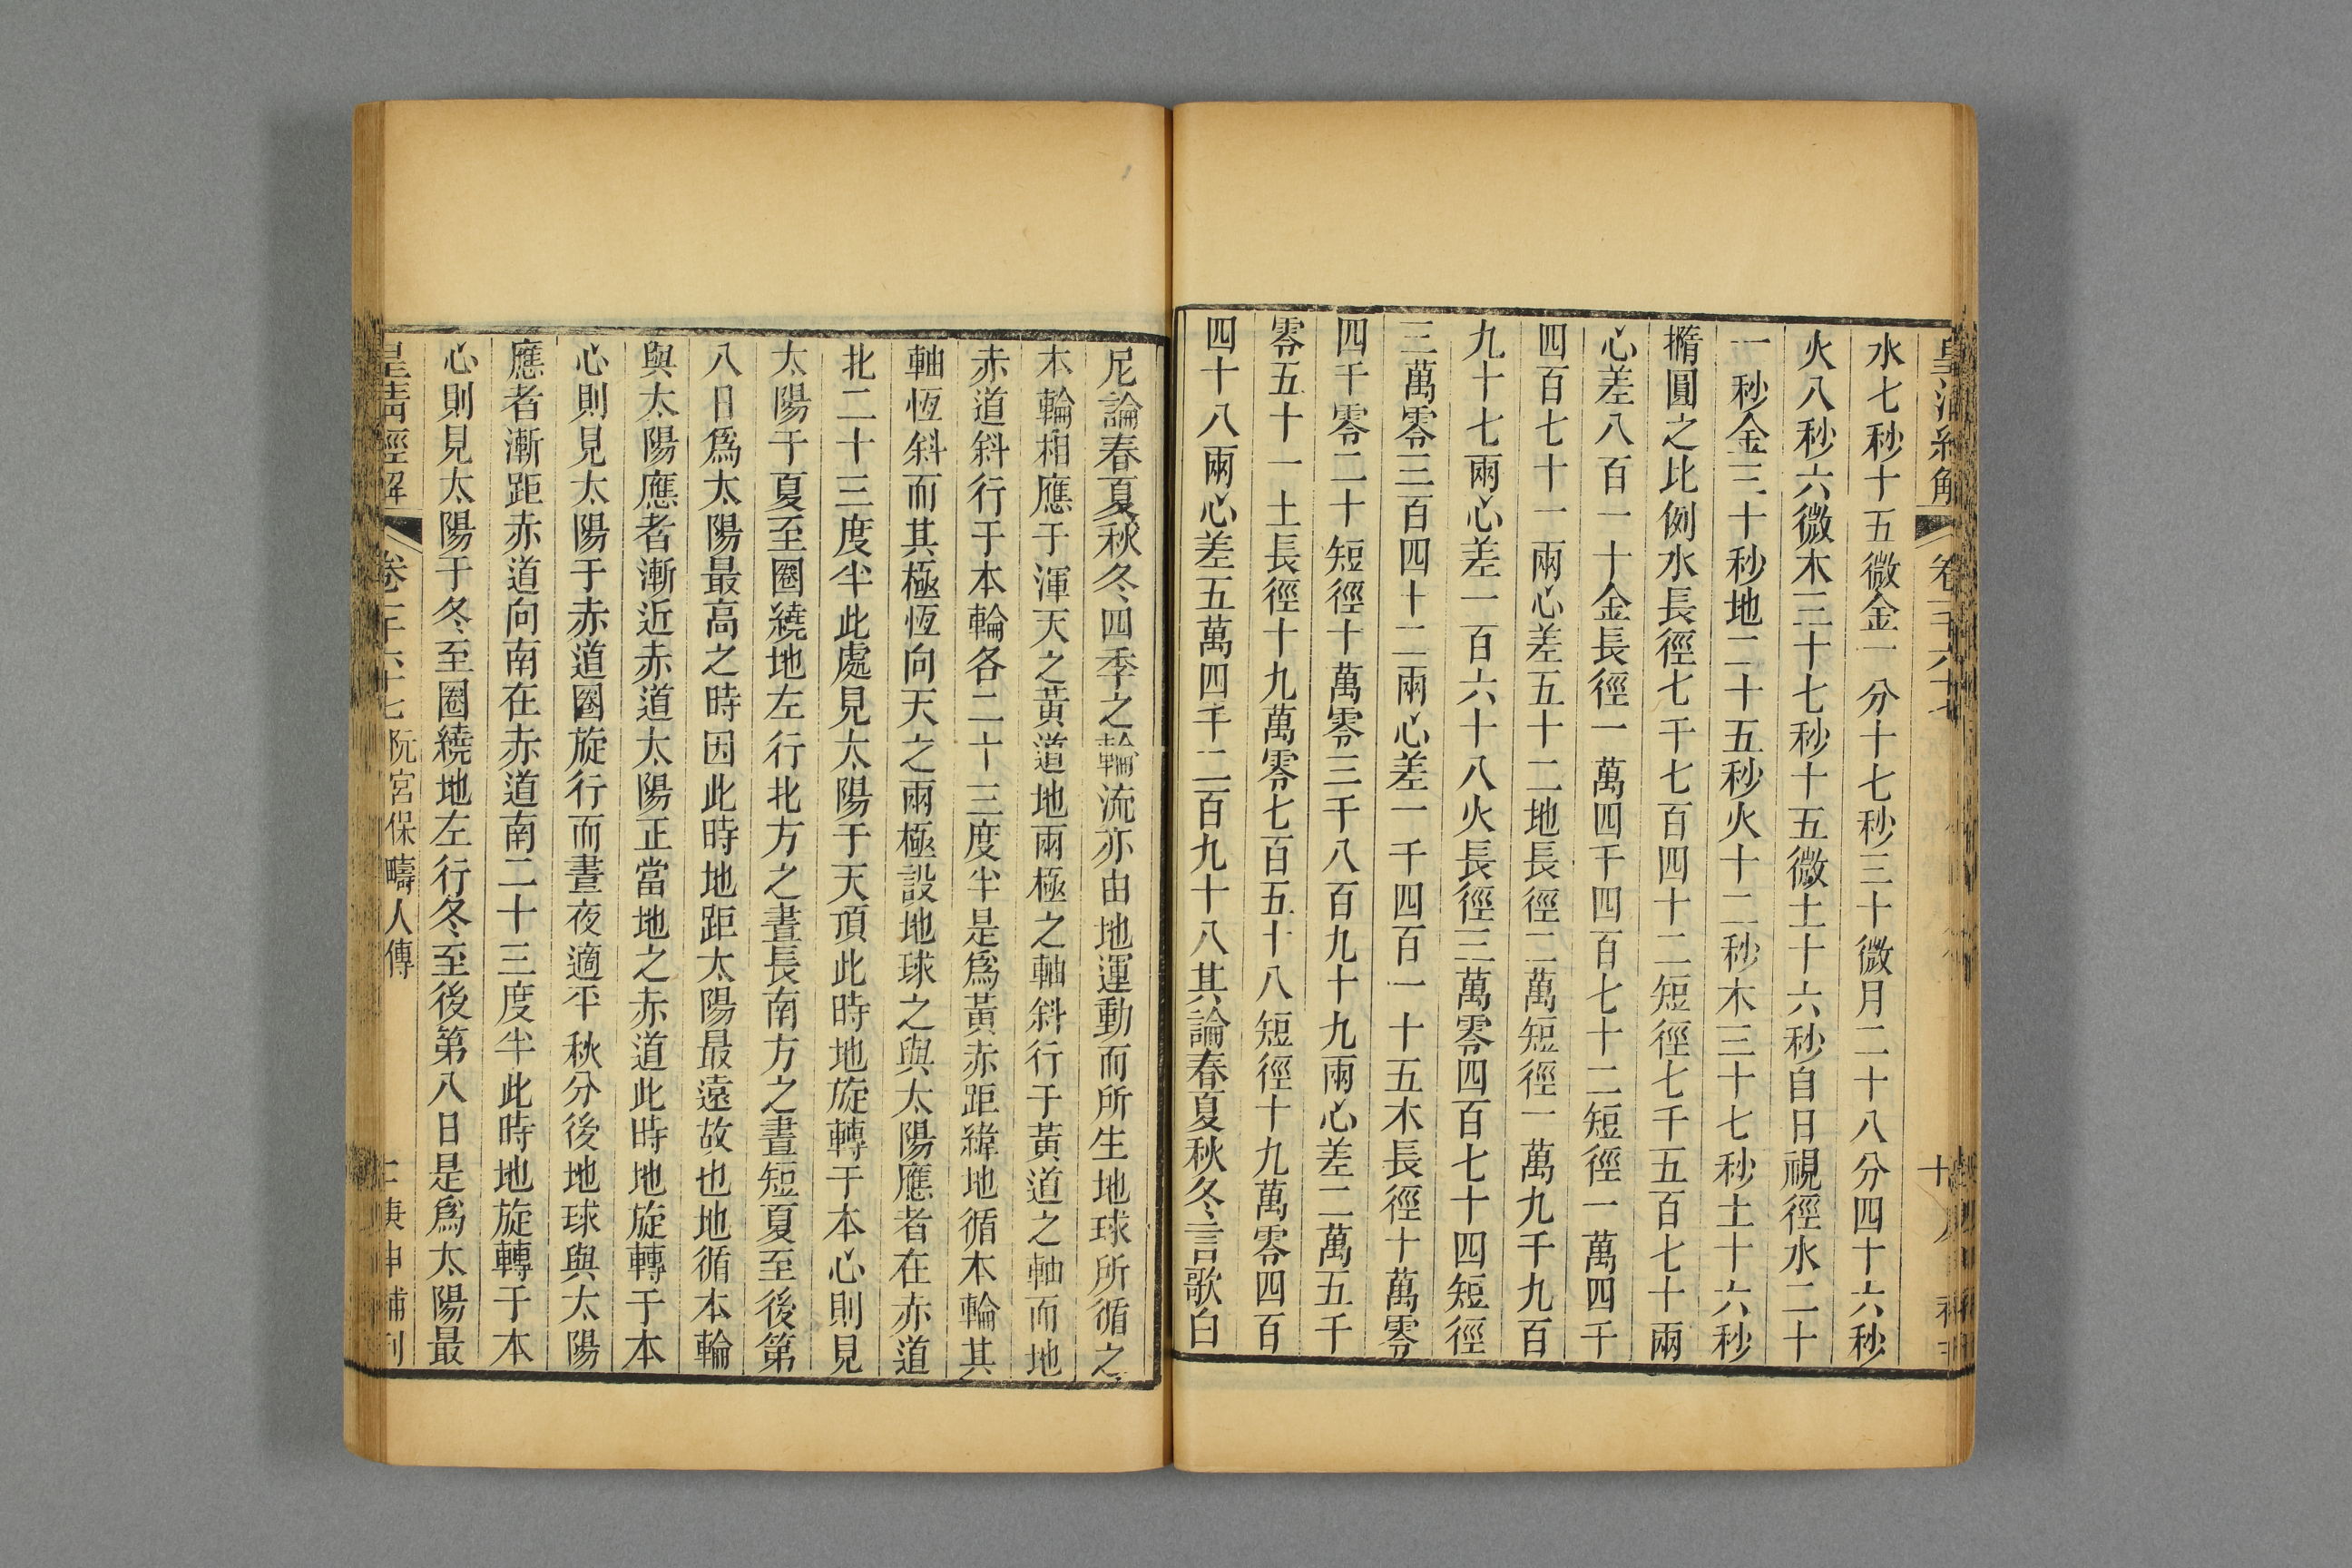 水七秒十五微金一分十七秒三十微月二十八分四十六秒
火八秒六微木三十七秒十五微土十六秒自日視徑水二十
一秒金三十秒地二十五秒火十二秒木三十七秒土十六秒
撱圓之比例水長徑七千七百四十二短徑七千五百七十兩
心差八百一十金長徑一萬四千四百七十二短徑一萬四千
四百七十一兩心差五十二地長徑二萬短徑一萬九千九百
九十七兩心差一百六十八火長徑三萬零四百七十四短徑
三萬零三百四十二兩心差一千四百一十五木長徑十萬零
四千零二十短徑十萬零三千八百九十九兩心差二萬五千
零五十一土長徑十九萬零七百五十八短徑十九萬零四百
四十八兩心差五萬四千二百九十八其論春夏秋冬言歌白
尼論春夏秋冬四季之輪流亦由地運動而所生地球所循之
本輪相應于渾天之黃道地兩極之軸斜行于黃道之軸而地
赤道斜行于本輪各二十三度半是爲黃赤距緯地循本輪其
軸恆斜而其極恆向天之兩極設地球之與太陽應者在赤道
北二十三度半此處見太陽于天頂此時地旋轉于本心則見
太陽于夏至圈繞地左行北方之晝長南方之晝短夏至後第
八日爲太陽最高之時因此時地距太陽最遠故也地循本輪
與太陽應者漸近赤道太陽正當地之赤道此時地旋轉于本
心則見太陽于赤道圈旋行而晝夜適平秋分後地球與太陽
應者漸距赤道向南在赤道南二十三度半此時地旋轉于本
心則見太陽于冬至圈繞地左行冬至後第八日是爲太陽最
皇淸經解 卷千六十七 阮宮保疇人傳 庚申補刊